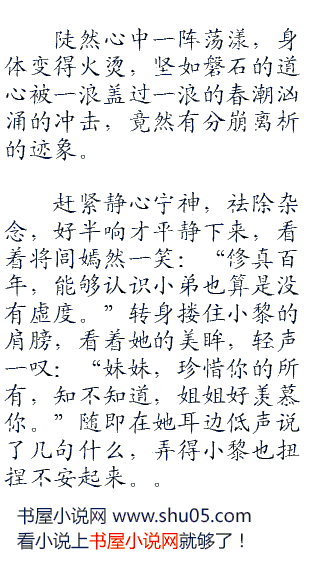 陡然心中一阵荡漾，身
体变得火烫，坚如磐石的道
心被一浪盖过一浪的春潮汹
涌的冲击，竟然有分崩离析
的迹象。
赶紧静心宁神，祛除杂
念，好半响才平静下来，看
着将闾嫣然一笑：“修真百
年，能够认识小弟也算是没
有虚度。”转身搂住小黎的
肩膀，看着她的美眸，轻声
一叹：“妹妹，珍惜你的所
有，知不知道，姐姐好羡慕
你。”随即在她耳边低声说
了几句什么，弄得小黎也扭
捏不安起来。。
书屋小说网 www.shu05.com
看小说上书屋小说网就够了！